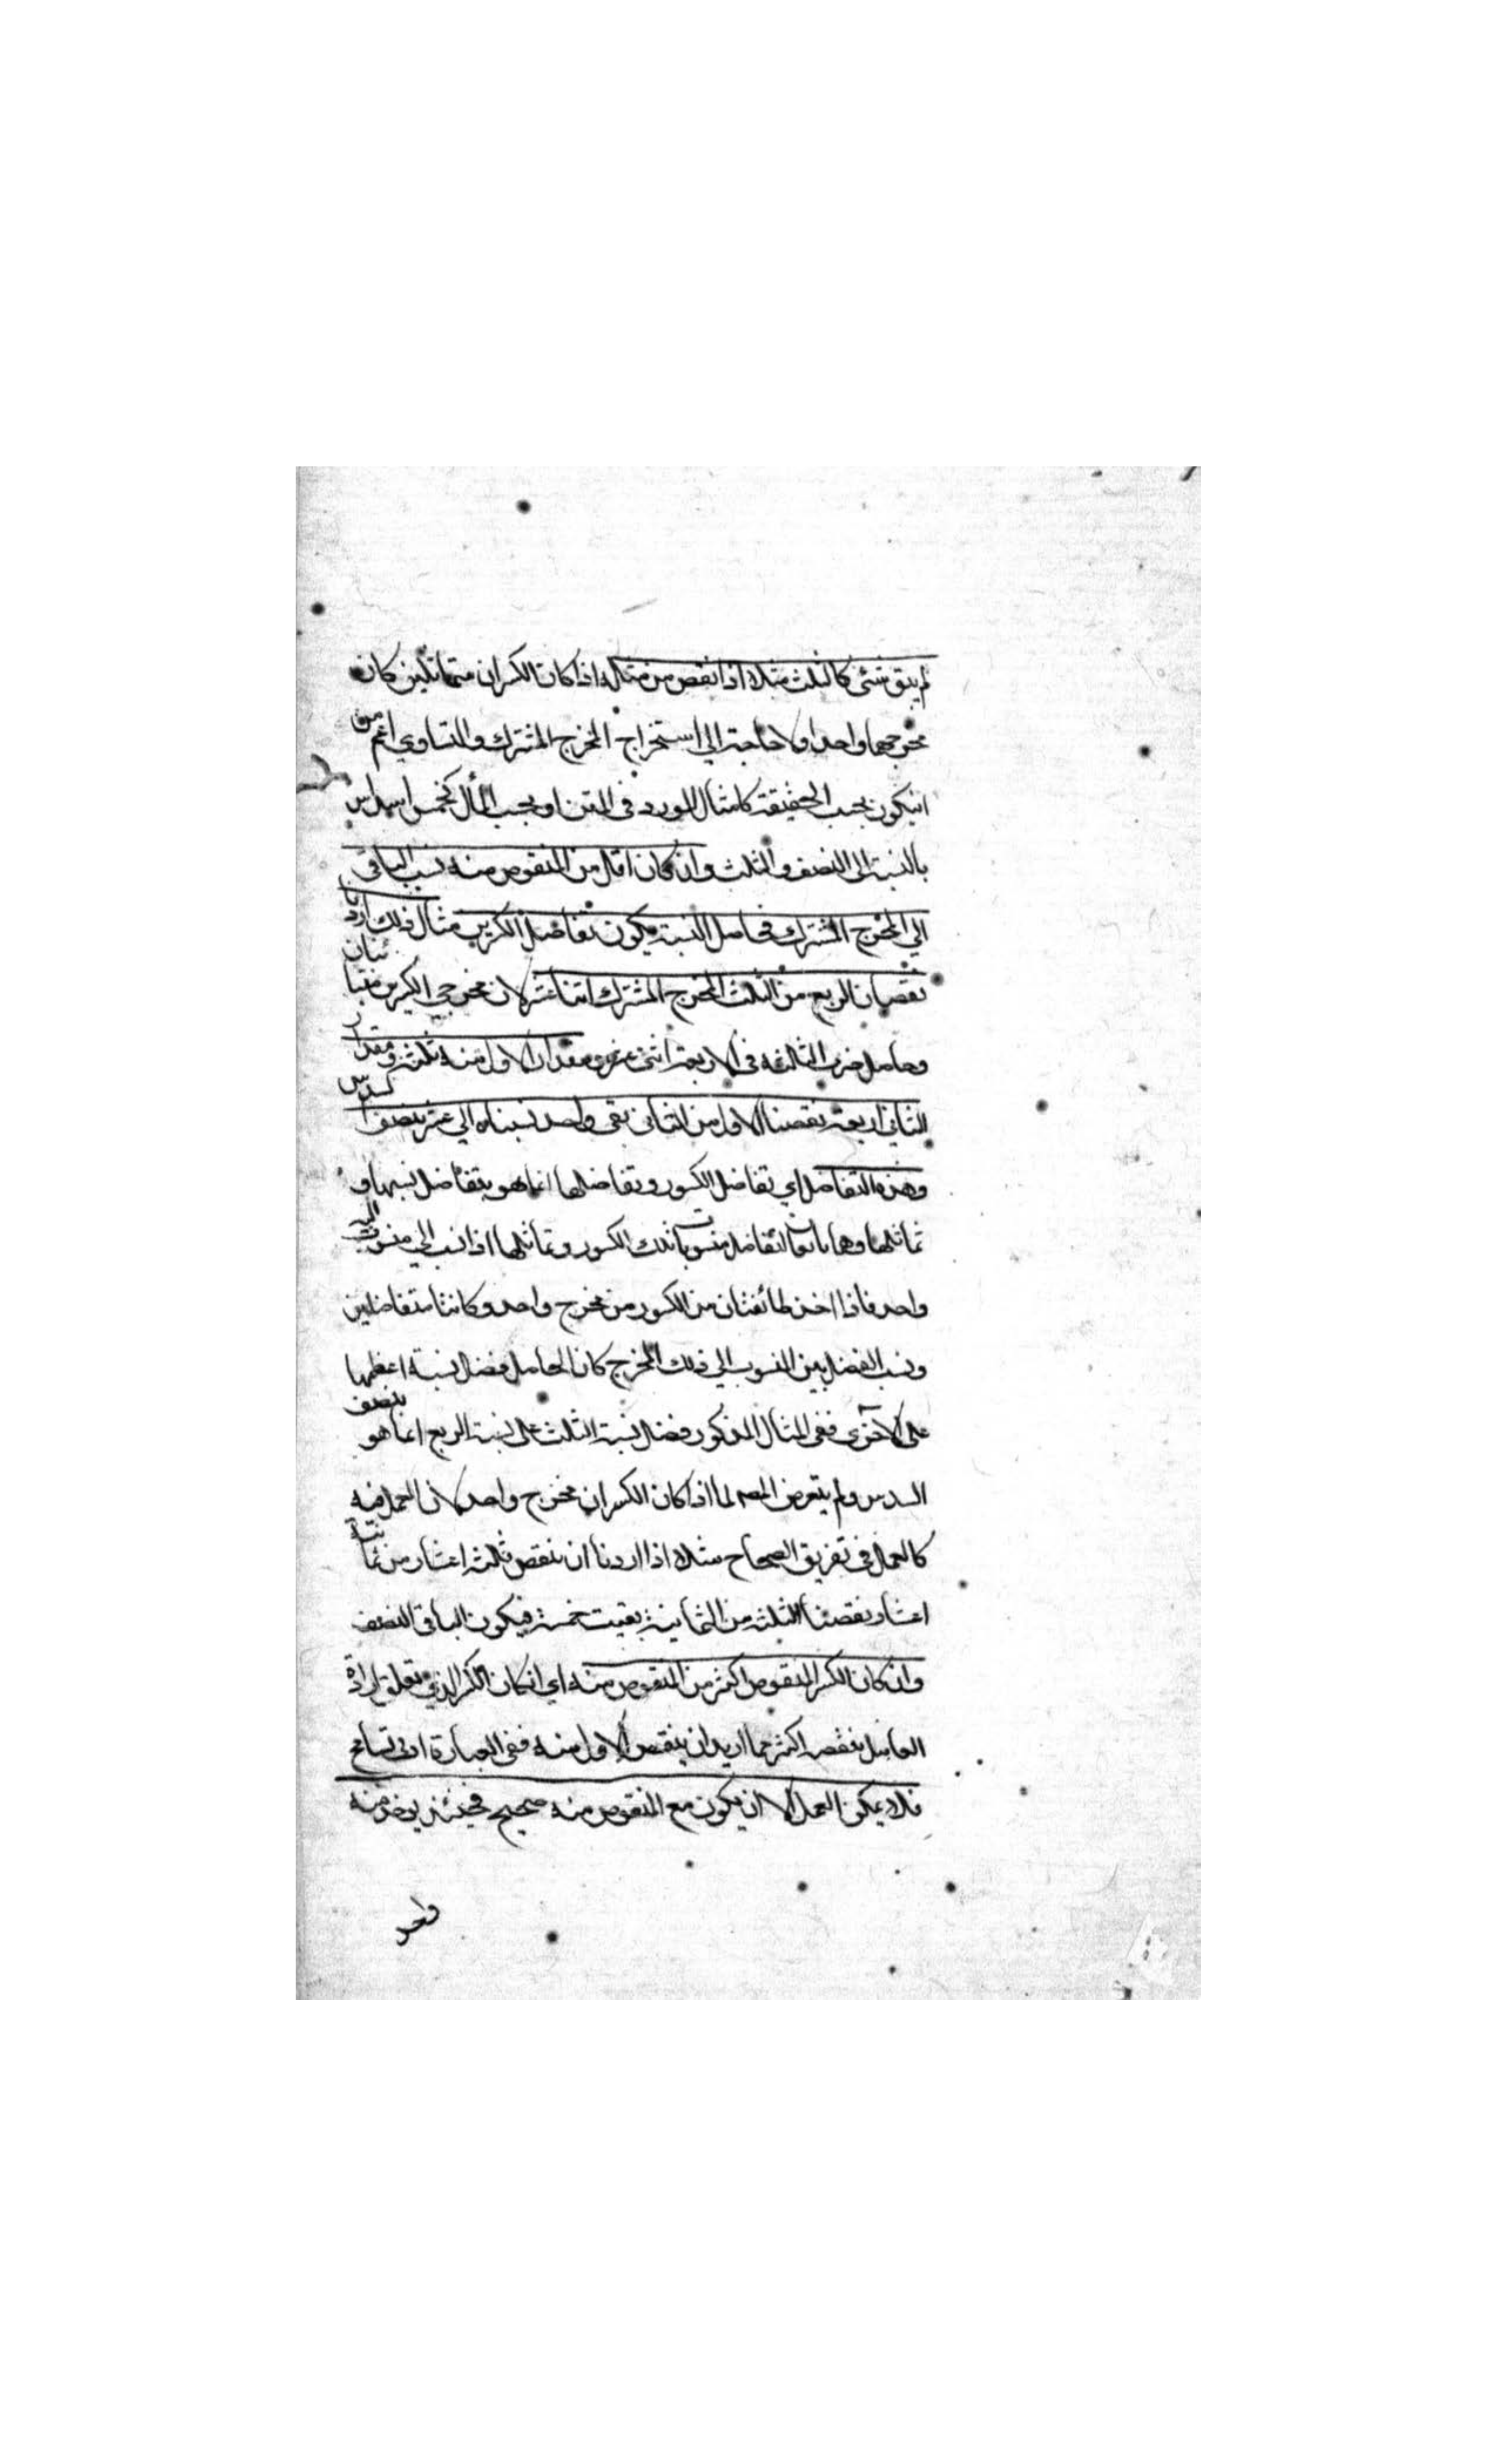 لم يبق شئ كالثلث مثلا اذا نقص من مثاله اذا كان الكسران متماثلين كان
مخرجهما واحدا ولا حاجة الى استخراج المخرج المشترك والتساوي اعم من
انيكون بحسب الحقيقة كالمثال المورد في المتن او بحسب المأل كخمس اسداس
بالنسبة الى النصف والثلث وان كان اقل من المنقوص منه نسب الباقي
الي المخرج المشترك فحاصل النسبة يكون تفاضل الكسرين مثال ذلك اردنا
نقصان الربع من الثلث المخرج المشترك اثنا عشر لان مخرجي الكسرين متباينان
وحاصل ضرب الثلثة في الاربعة اثنى عشر ومقدار الاول منه ثلثة ومقدار
الثاني اربعة نقصنا الاول من الثاني بقى واحد نسبناه الي عشر بنصف سدس
وهذه التفاضل اي تفاضل الكسور وتفاضلها انما هو بتفاضل نسبها و
تماثلها وهاتان التفاضل منسوبات تلك الكسور وتماثلها اذا نسب الى منسوب اليه
واحد فاذا اخذ طائفتان من الكسور من مخرج واحد وكانتا متفاضلين
ونسب الفضل بين المنسوب الي ذلك المخرج كان الحاصل فضل نسبة اعظمها
على الاخرى ففي المثال المذكور فضل نسبة الثلث على نسبة الربع انما هو بنصف
السدس ولم يتعرض المصـ لما اذا كان الكسران مخرج واحد لان العمل فيه
كالعمل في تفريق الصحاح مثلا اذا اردنا ان ننقص ثلثة اعشار من ثمانية
اعشار نقصنا الثلثة من الثمانية بقيت خمسة فيكون الباقي النصف
وان كان الكسر المنقوص اكثر من المنقوص منه اي انكان الكسر الذي تعلق ارادة
العامل بنقصه اكثر مما اريد ان ينقص الاول منه ففي العبارة ادنى تسامح
فلا يمكن العمل الا ان يكون مع المنقوص منه صحيح فحينئذ يوخذ منه
واحد